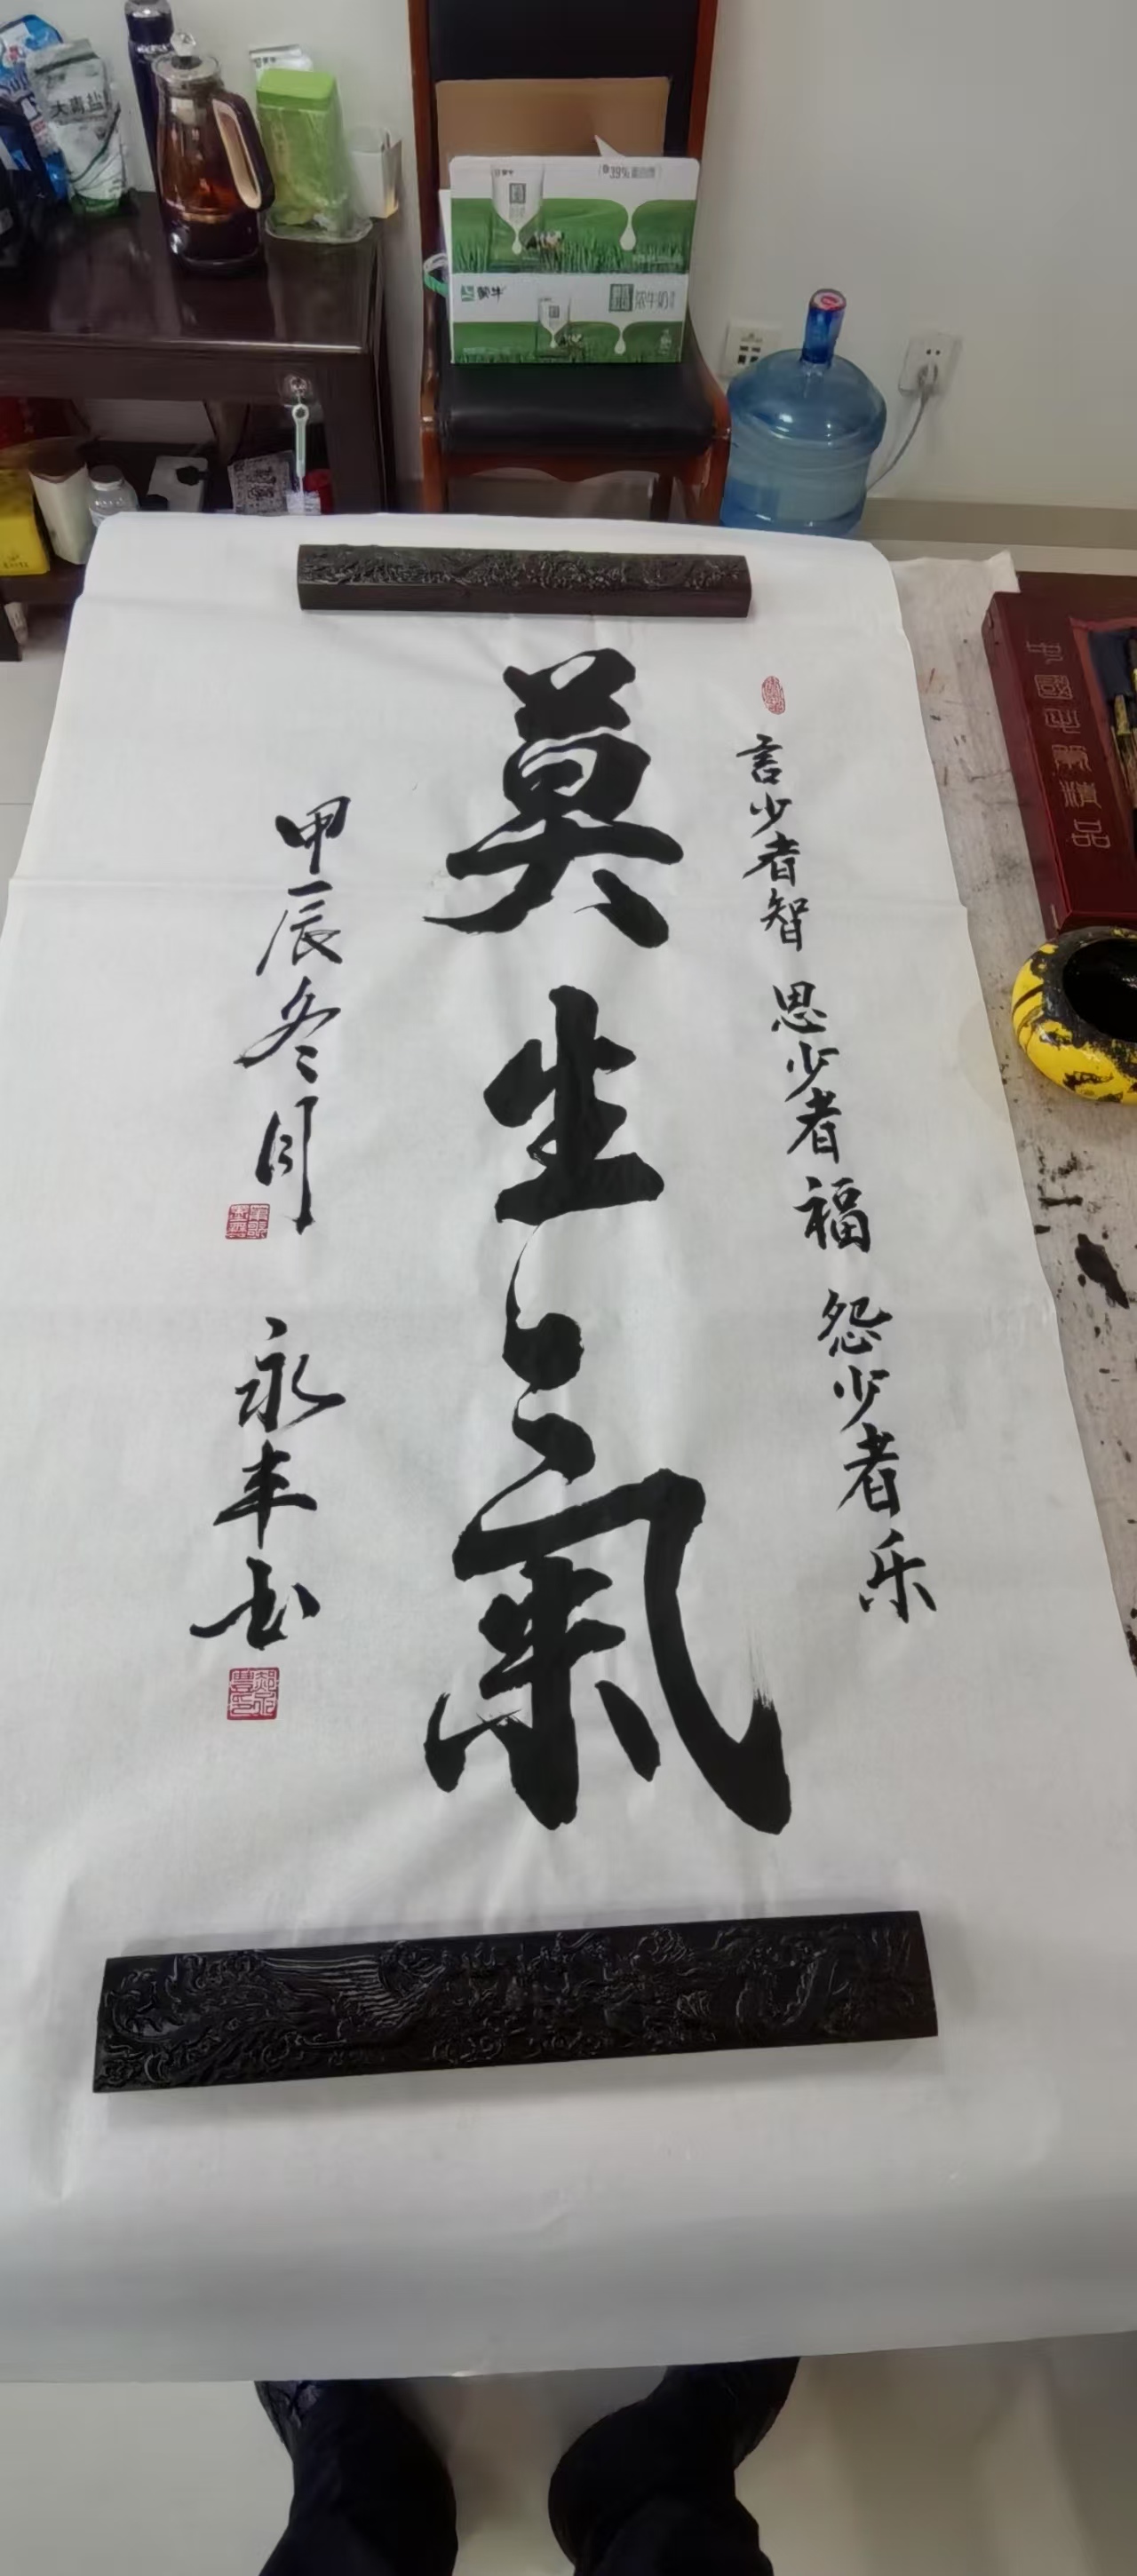 言少者智 思少者福 怨少者乐
莫生氣
甲辰冬月
永丰书
中國
精品
大青盐
蒙牛
浓牛奶